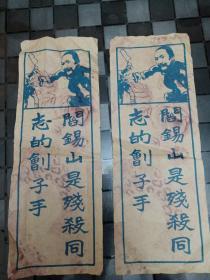 閻錫山是殘殺同
志的劊子手
閻錫山是殘殺同
志的劊子手